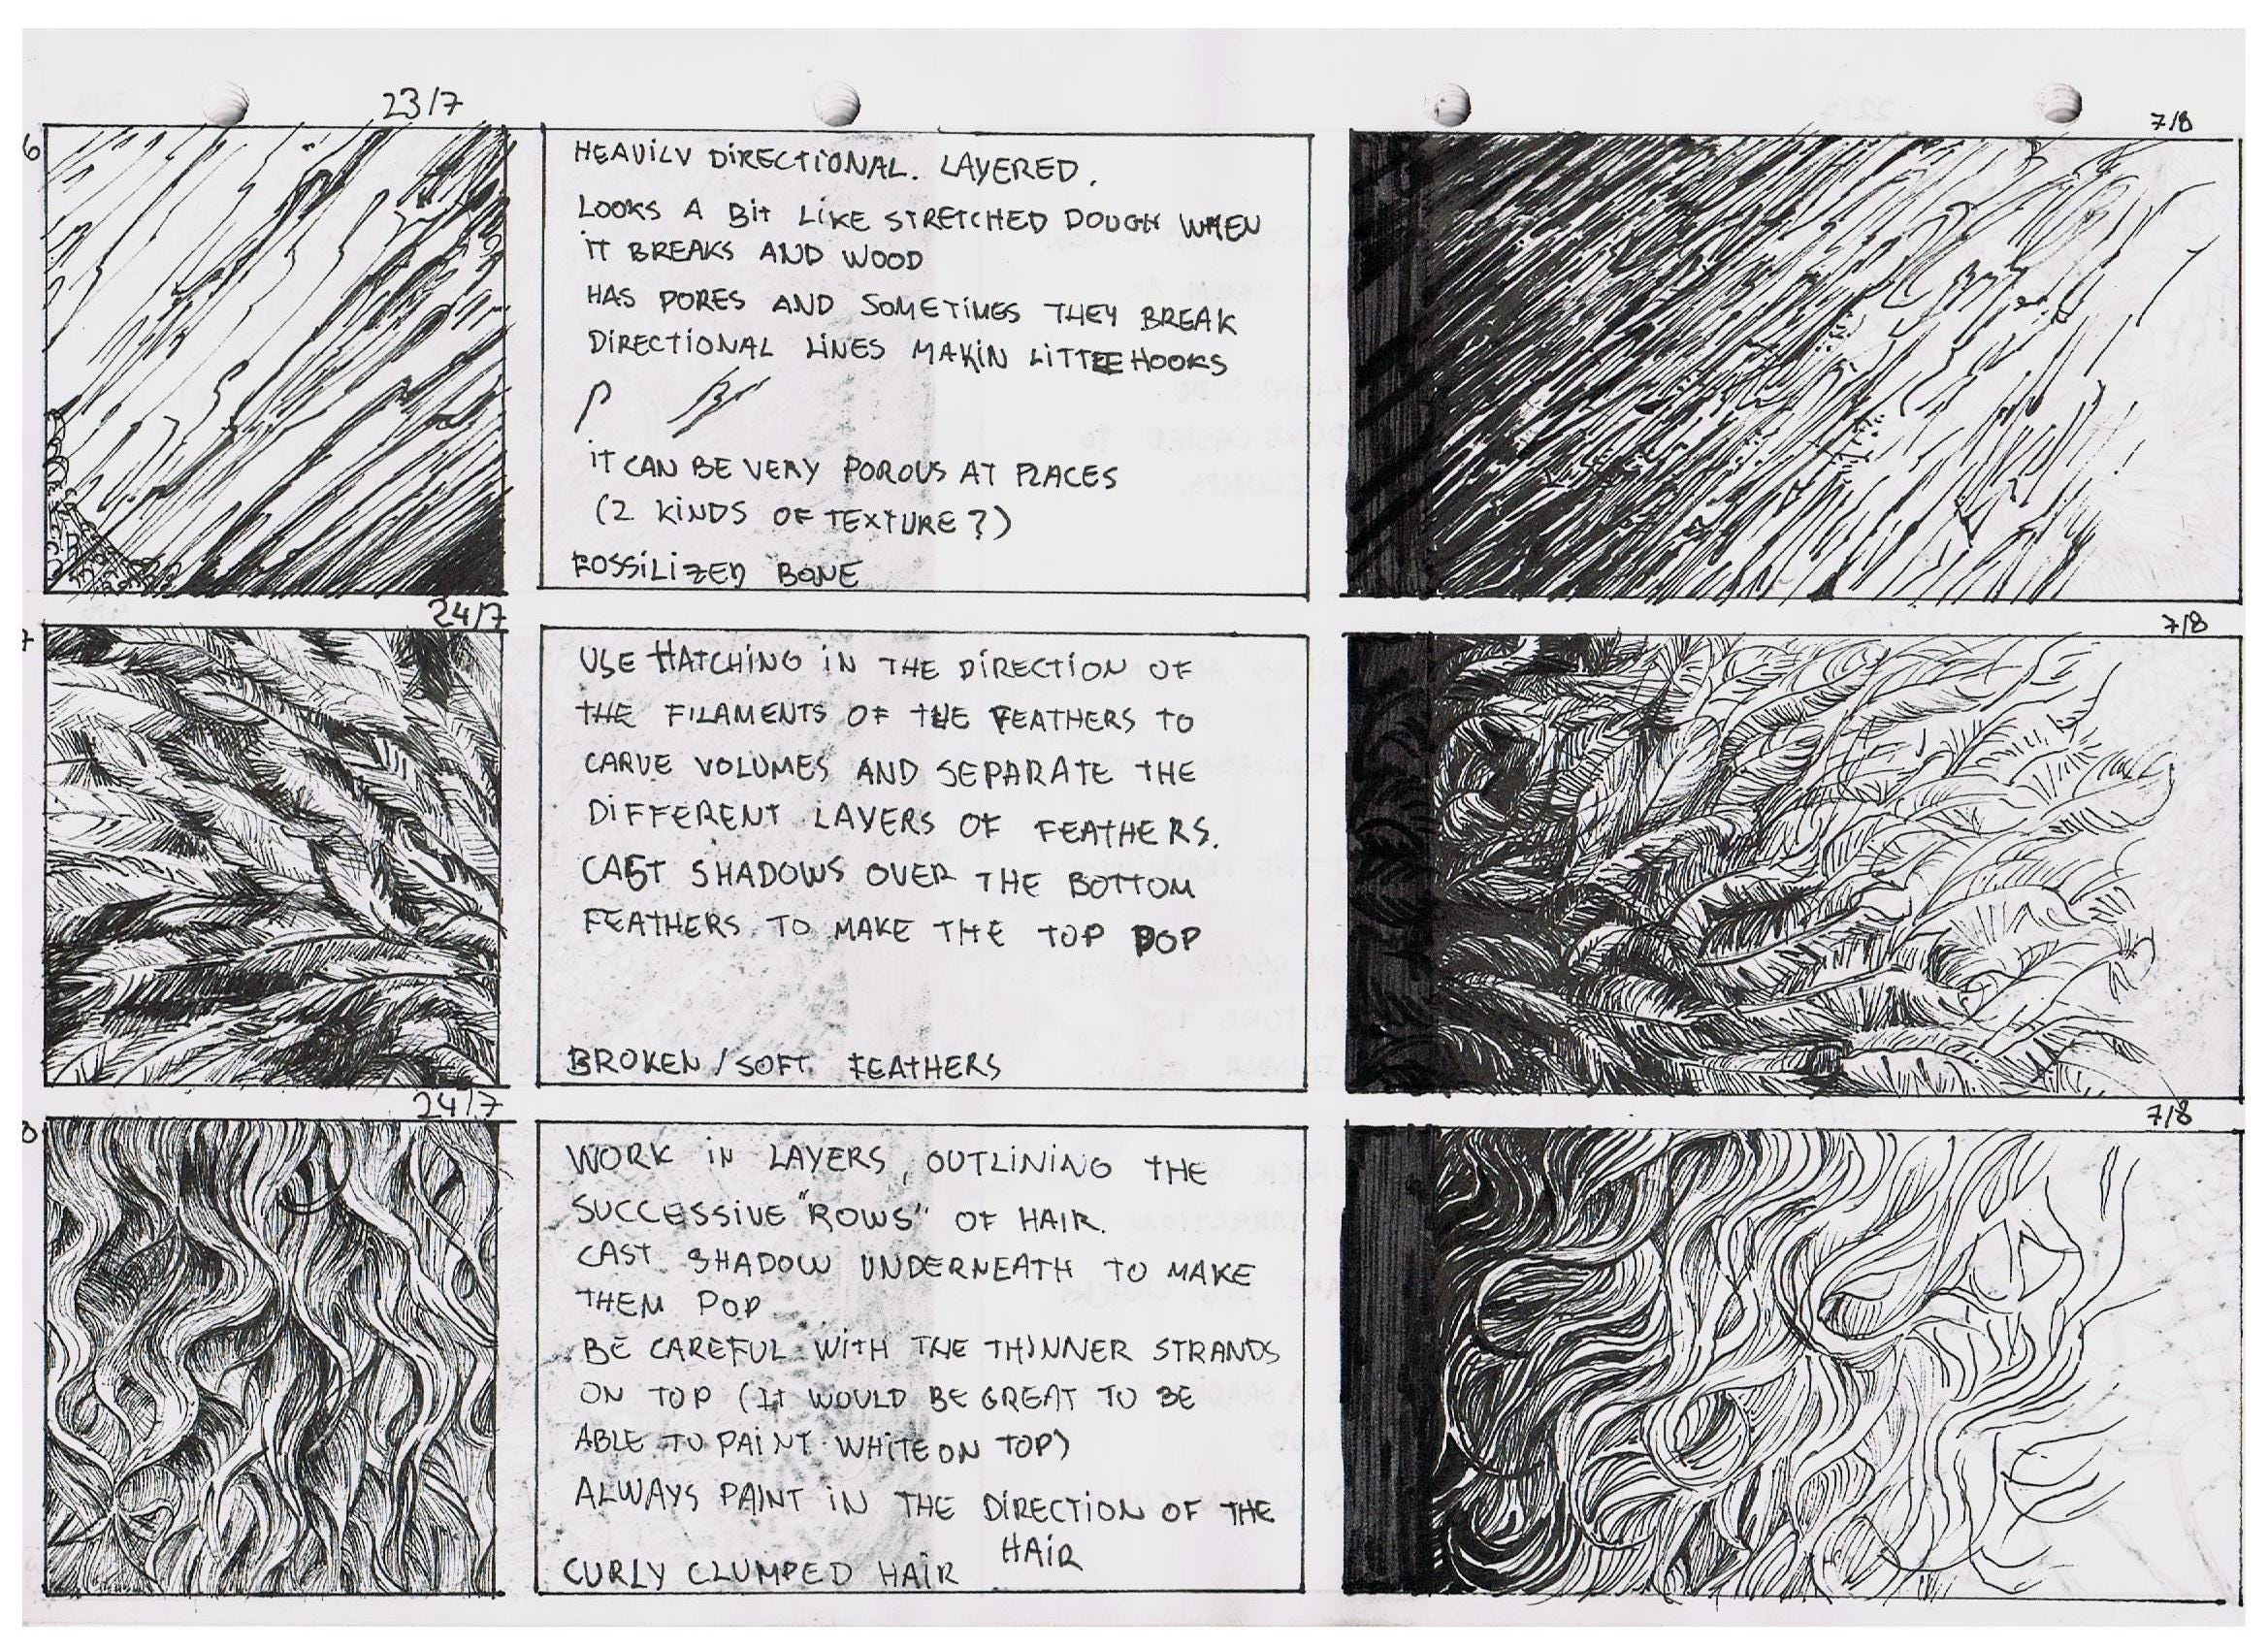 23/7
7/8
6
HEAVILY DIRECTIONAL. LAYERED.
LOOKS A BIT LIKE STRETCHED DOUGH WHEN
IT BREAKS AND WOOD
HAS PORES AND SOMETIMES THEY BREAK
DIRECTIONAL LINES MAKIN LITTLE HOOKS
IT CAN BE VERY POROUS AT PLACES
(2 KINDS OF TEXTURE?)
FOSSILIZED BONE
24/7
7/8
7
USE HATCHING IN THE DIRECTION OF
THE FILAMENTS OF THE FEATHERS TO
CARVE VOLUMES AND SEPARATE THE
DIFFERENT LAYERS OF FEATHERS.
CAST SHADOWS OVER THE BOTTOM
FEATHERS TO MAKE THE TOP POP
BROKEN/SOFT FEATHERS
24/7
7/8
WORK IN LAYERS, OUTLINING THE
SUCCESSIVE "ROWS" OF HAIR.
CAST SHADOW UNDERNEATH TO MAKE
THEM POP
BE CAREFUL WITH THE THINNER STRANDS
ON TOP (IT WOULD BE GREAT TO BE
ABLE TO PAINT WHITE ON TOP)
ALWAYS PAINT IN THE DIRECTION OF THE
HAIR
CURLY CLUMPED HAIR